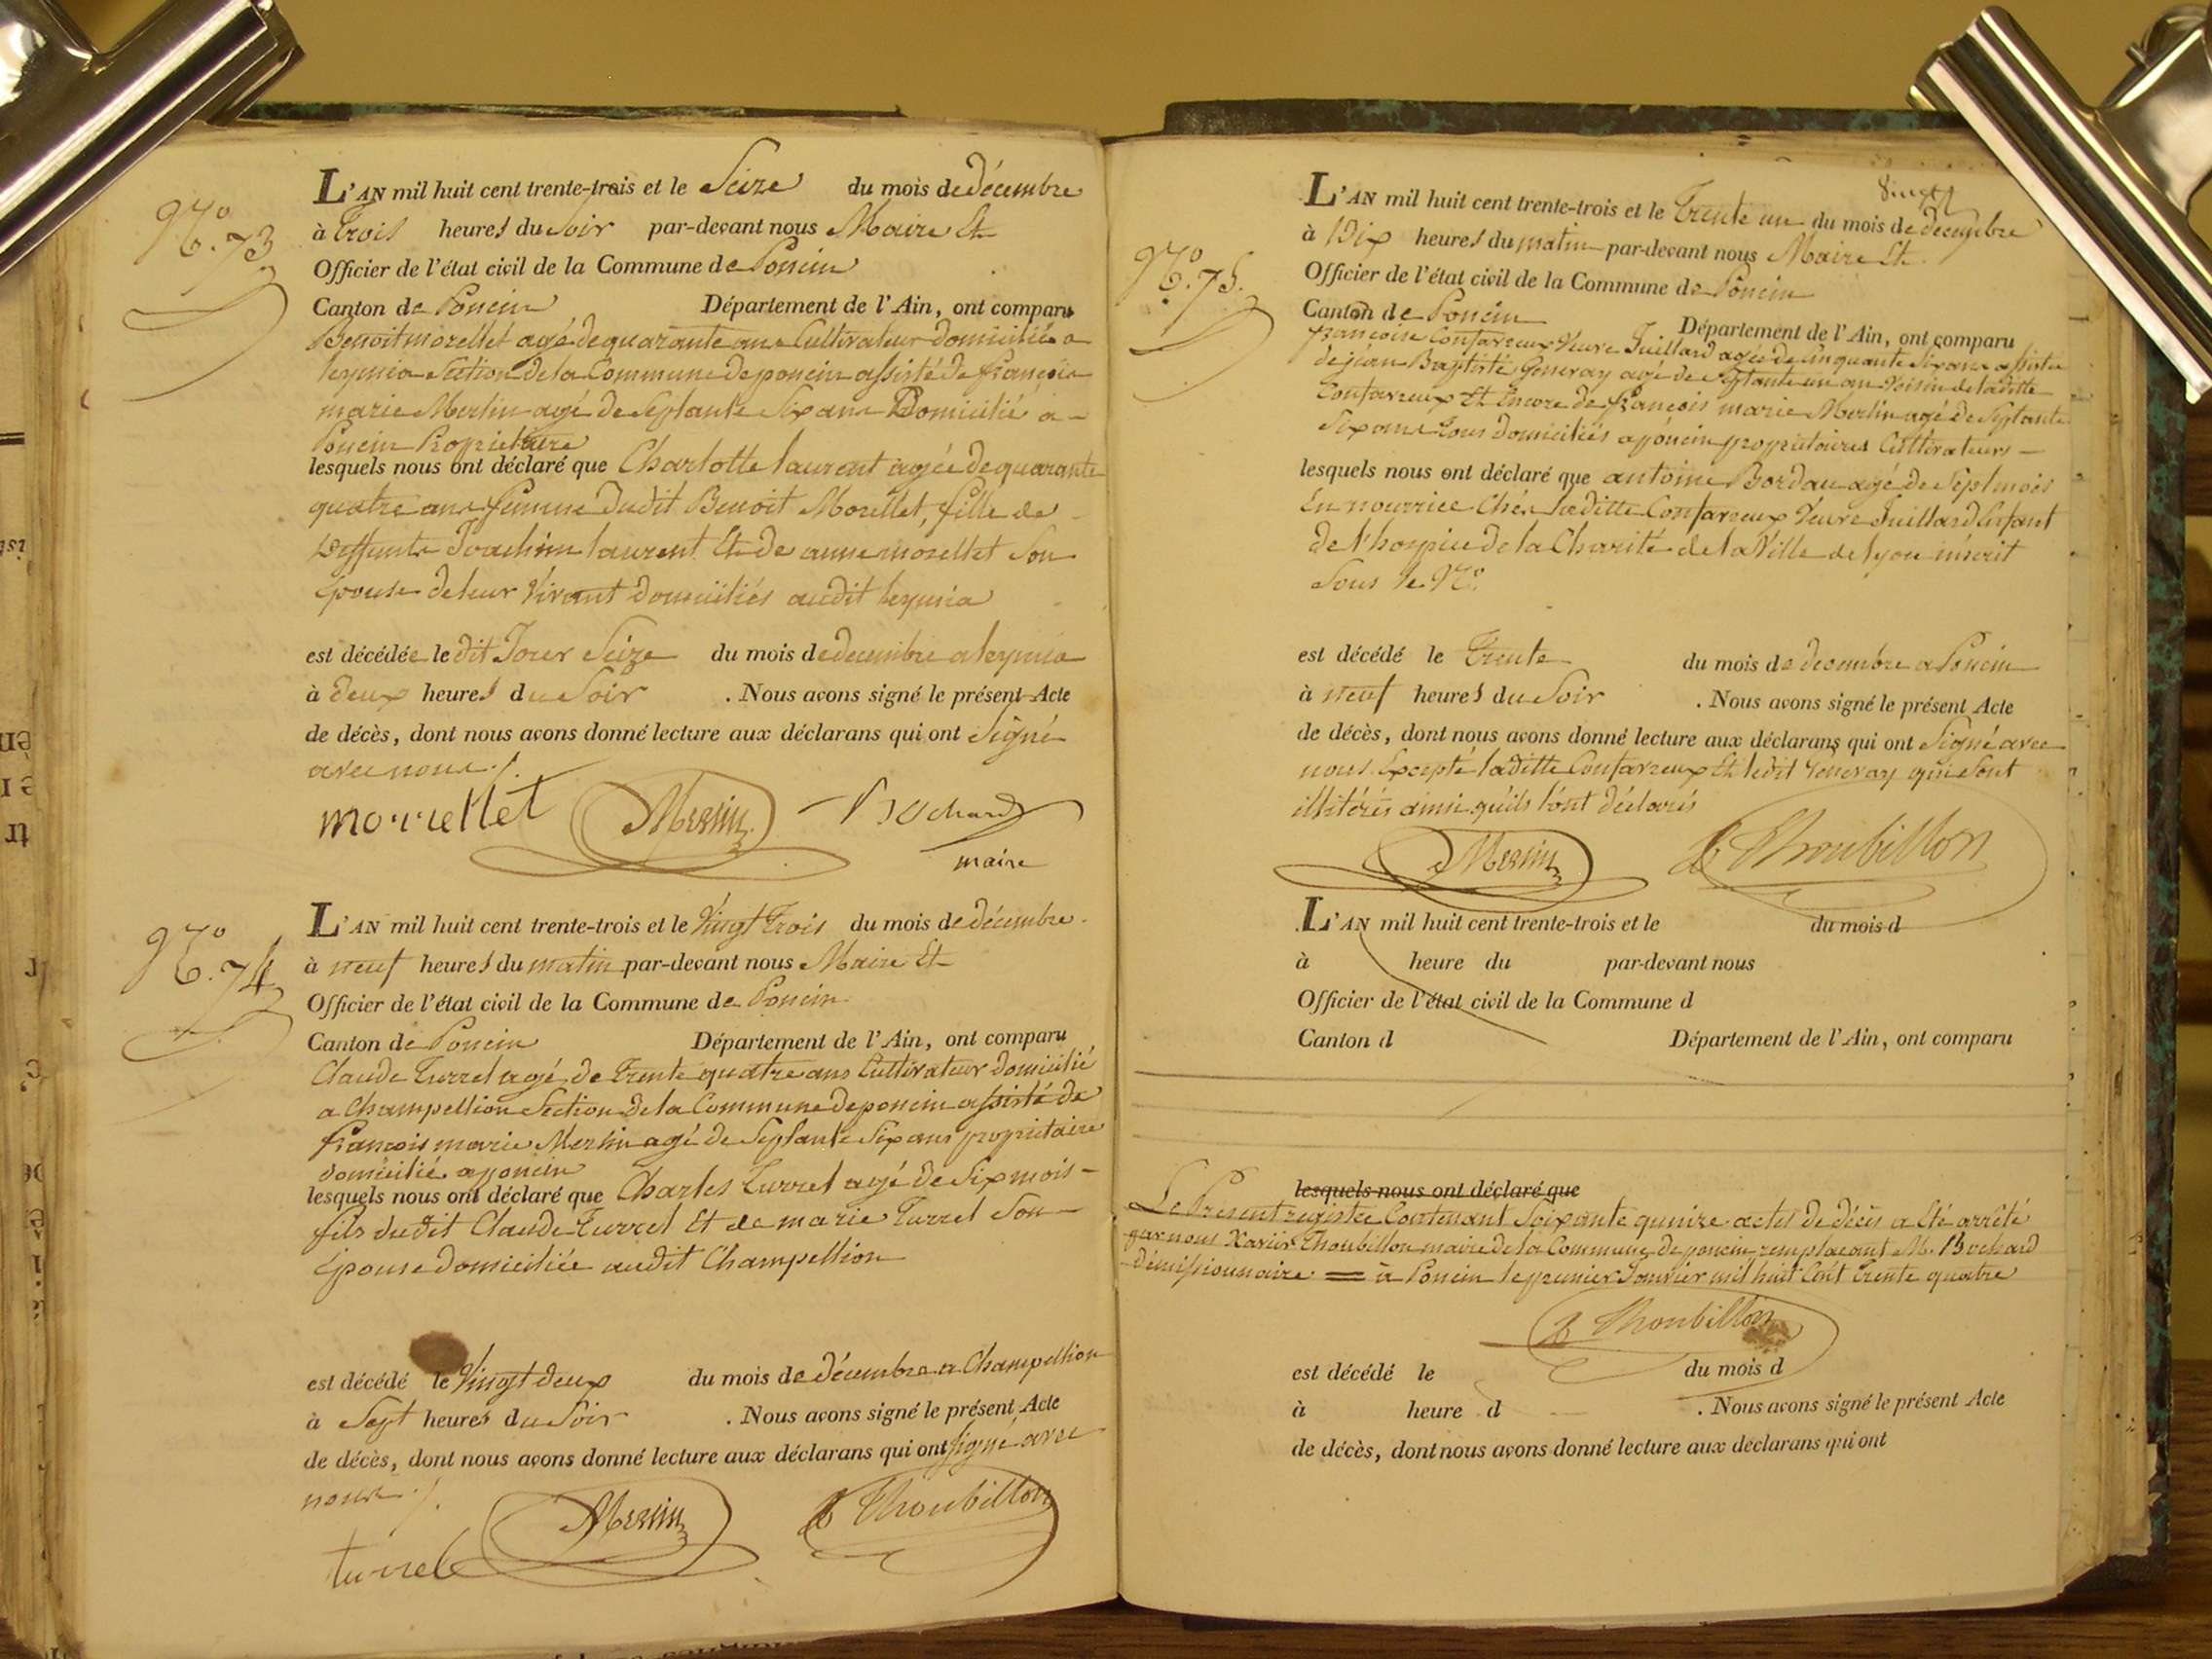 N.° 73
L'AN mil huit cent trente-trois et le Seize du mois de décembre
à trois heures du Soir par-devant nous Maire Et
Officier de l'état civil de la Commune de Poncin
Canton de Poncin Département de l'Ain, ont comparu
Benoit morellet agé de quarante ans Cultivateur domicilié a
leymia Section de la Commune de poncin assisté de françois
marie Merlin agé de Septante Six ans Domicilié a
Poncin Propriétaire
lesquels nous ont déclaré que Charlotte laurent agée de quarante
quatre ans femme dudit Benoit Morellet, fille de
deffunts Joachim laurent Et de anne morellet Son
épouse de leur Vivant domiciliés audit leymia
est décédée le dit Jour Seize du mois de decembre a leymia
à deux heures du Soir . Nous avons signé le présent Acte
de décès, dont nous avons donné lecture aux déclarans qui ont Signé
avec nous ./.
morrellet Merlin Bochard
maire
N.° 74
L'AN mil huit cent trente-trois et le Vingt trois du mois de décembre
à neuf heures du matin par-devant nous Maire Et
Officier de l'état civil de la Commune de Poncin
Canton de Poncin Département de l'Ain, ont comparu
Claude Turrel agé de trente quatre ans Cultivateur domicilié
a Champellion Section de la Commune de poncin assisté de
françois marie Merlin agé de Septante Six ans propriétaire
domicilié a poncin
lesquels nous ont déclaré que Charles Turrel agé de Six mois
fils dudit Claude Turrel Et de marie Turrel Son
épouse domiciliée audit Champellion
est décédé le Vingt deux du mois de décembre a Champellion
à Sept heures du Soir . Nous avons signé le présent Acte
de décès, dont nous avons donné lecture aux déclarans qui ont signé avec
nous ./.
turrel Merlin X Thoubillon
N.° 75.
L'AN mil huit cent trente-trois et le Trente un du mois de decembre
à Dix heures du matin par-devant nous Maire Et
Officier de l'état civil de la Commune de Poncin
Canton de Poncin Département de l'Ain, ont comparu
françoise Confavreux Veuve Juillard agée de cinquante Six ans assistée
de jean Baptiste Generay agé de Septante un an Voisin de laditte
Confavreux Et Encore de françois marie Merlin agé de Septante
Six ans tous domiciliés a poncin propriétaires Cultivateurs
lesquels nous ont déclaré que antoine Bordau agé de Sept mois
En nourrice Chés laditte Confavreux Veuve Juillard Enfant
de l'hospice de la Charité de la Ville de lyon inscrit
Sous le N.°
est décédé le Trente du mois de decembre a Poncin
à neuf heures du Soir . Nous avons signé le présent Acte
de décès, dont nous avons donné lecture aux déclarans qui ont Signé avec
nous Excepté laditte Confavreux Et ledit Géneray qui Sont
illitérés ainsi qu'ils l'ont déclarés
Merlin X Thoubillon
L'AN mil huit cent trente-trois et le du mois d
à heure du par-devant nous
Officier de l'état civil de la Commune d
Canton d Département de l'Ain, ont comparu
lesquels nous ont déclaré que
Le Présent registre Contenant Soixante quinze actes de décès a été arrêté
par nous Xavier Thoubillon maire de la Commune de poncin remplaçant M. Bochard
démissionnaire = à Poncin le premier Janvier mil huit Cent trente quatre
X Thoubillon
est décédé le du mois d
à heure d . Nous avons signé le présent Acte
de décès, dont nous avons donné lecture aux déclarans qui ont